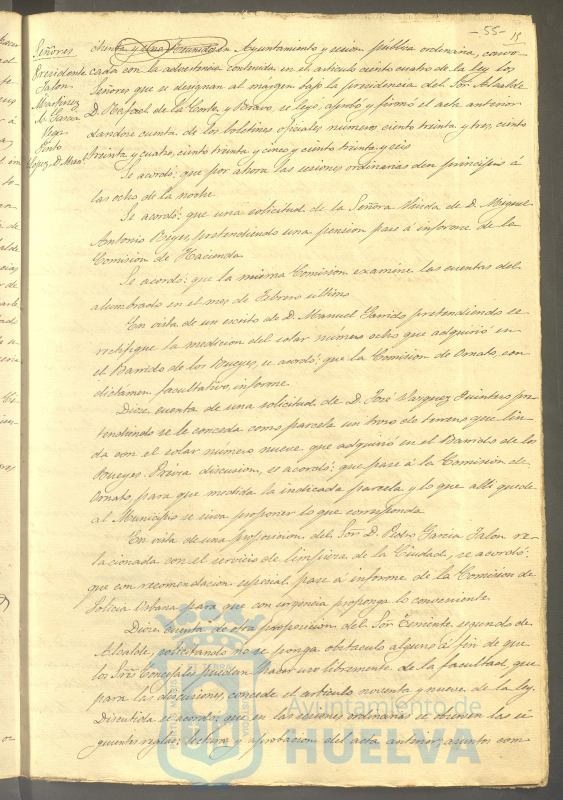 -55- 15
Señores
Presidente
Jalon
Martinez
A. Garcia
Vego
Pinto
Lopez, D. Man.l
chenta y una Reunidos en Ayuntamiento y sesion pública ordinaria, convo-
cada con la advertencia contenida en el articulo ciento cuatro de la ley los
Señores que se designan al margen bajo la presidencia del Sor. Alcalde
D. Rafael de la Corte y Bravo, se leyó, aprobó y firmó el acta anterior
dandose cuenta de los boletines oficiales número ciento treinta y tres, ciento
treinta y cuatro, ciento treinta y cinco y ciento treinta y seis
Se acordó: que por ahora las sesiones ordinarias den principio á
las ocho de la noche
Se acordó: que una solicitud de la Señora Viuda de D. Miguel
Antonio Reyes, pretendiendo una pension pase á informe de la
Comision de Hacienda
Se acordó: que la misma Comision examine las cuentas del
alumbrado en el mes de Febrero último
En vista de un escrito de D. Manuel Garrido pretendiendo se
rectifique la medicion del solar número ocho que adquirió en
el Barrido de los Bueyes, se acordó: que la Comision de Ornato, con
dictámen facultativo, informe
Dióse cuenta de una solicitud de D. José Vazquez Quintero pre-
tendiendo se le conceda como parcela un trozo de terreno que lin-
da con el solar número nueve que adquirió en el Barrido de los
Bueyes. Prévia discusion, se acordó: que pase á la Comision de
Ornato para que medida la indicada parcela y lo que allí quede
al Municipio se sirva proponer lo que corresponda
En vista de una proposicion del Sor. D. Pedro Garcia Jalon re-
lacionada con el servicio de limpieza de la Ciudad, se acordó:
que con recomendacion especial pase á informe de la Comision de
Policia Urbana para que con urgencia proponga lo conveniente
Dióse cuenta de otra proposicion del Sor. Teniente segundo de
Alcalde, solicitando no se ponga obstáculo alguno á fin de que
los Sres. Concejales puedan hacer uso libremente de la facultad que
para las discusiones, concede el articulo noventa y nueve de la ley.
Discutida se acordó: que en las sesiones ordinarias se observen las si-
guientes reglas: lectura y aprobacion del acta anterior; asuntos com-
Ayuntamiento de
HUELVA